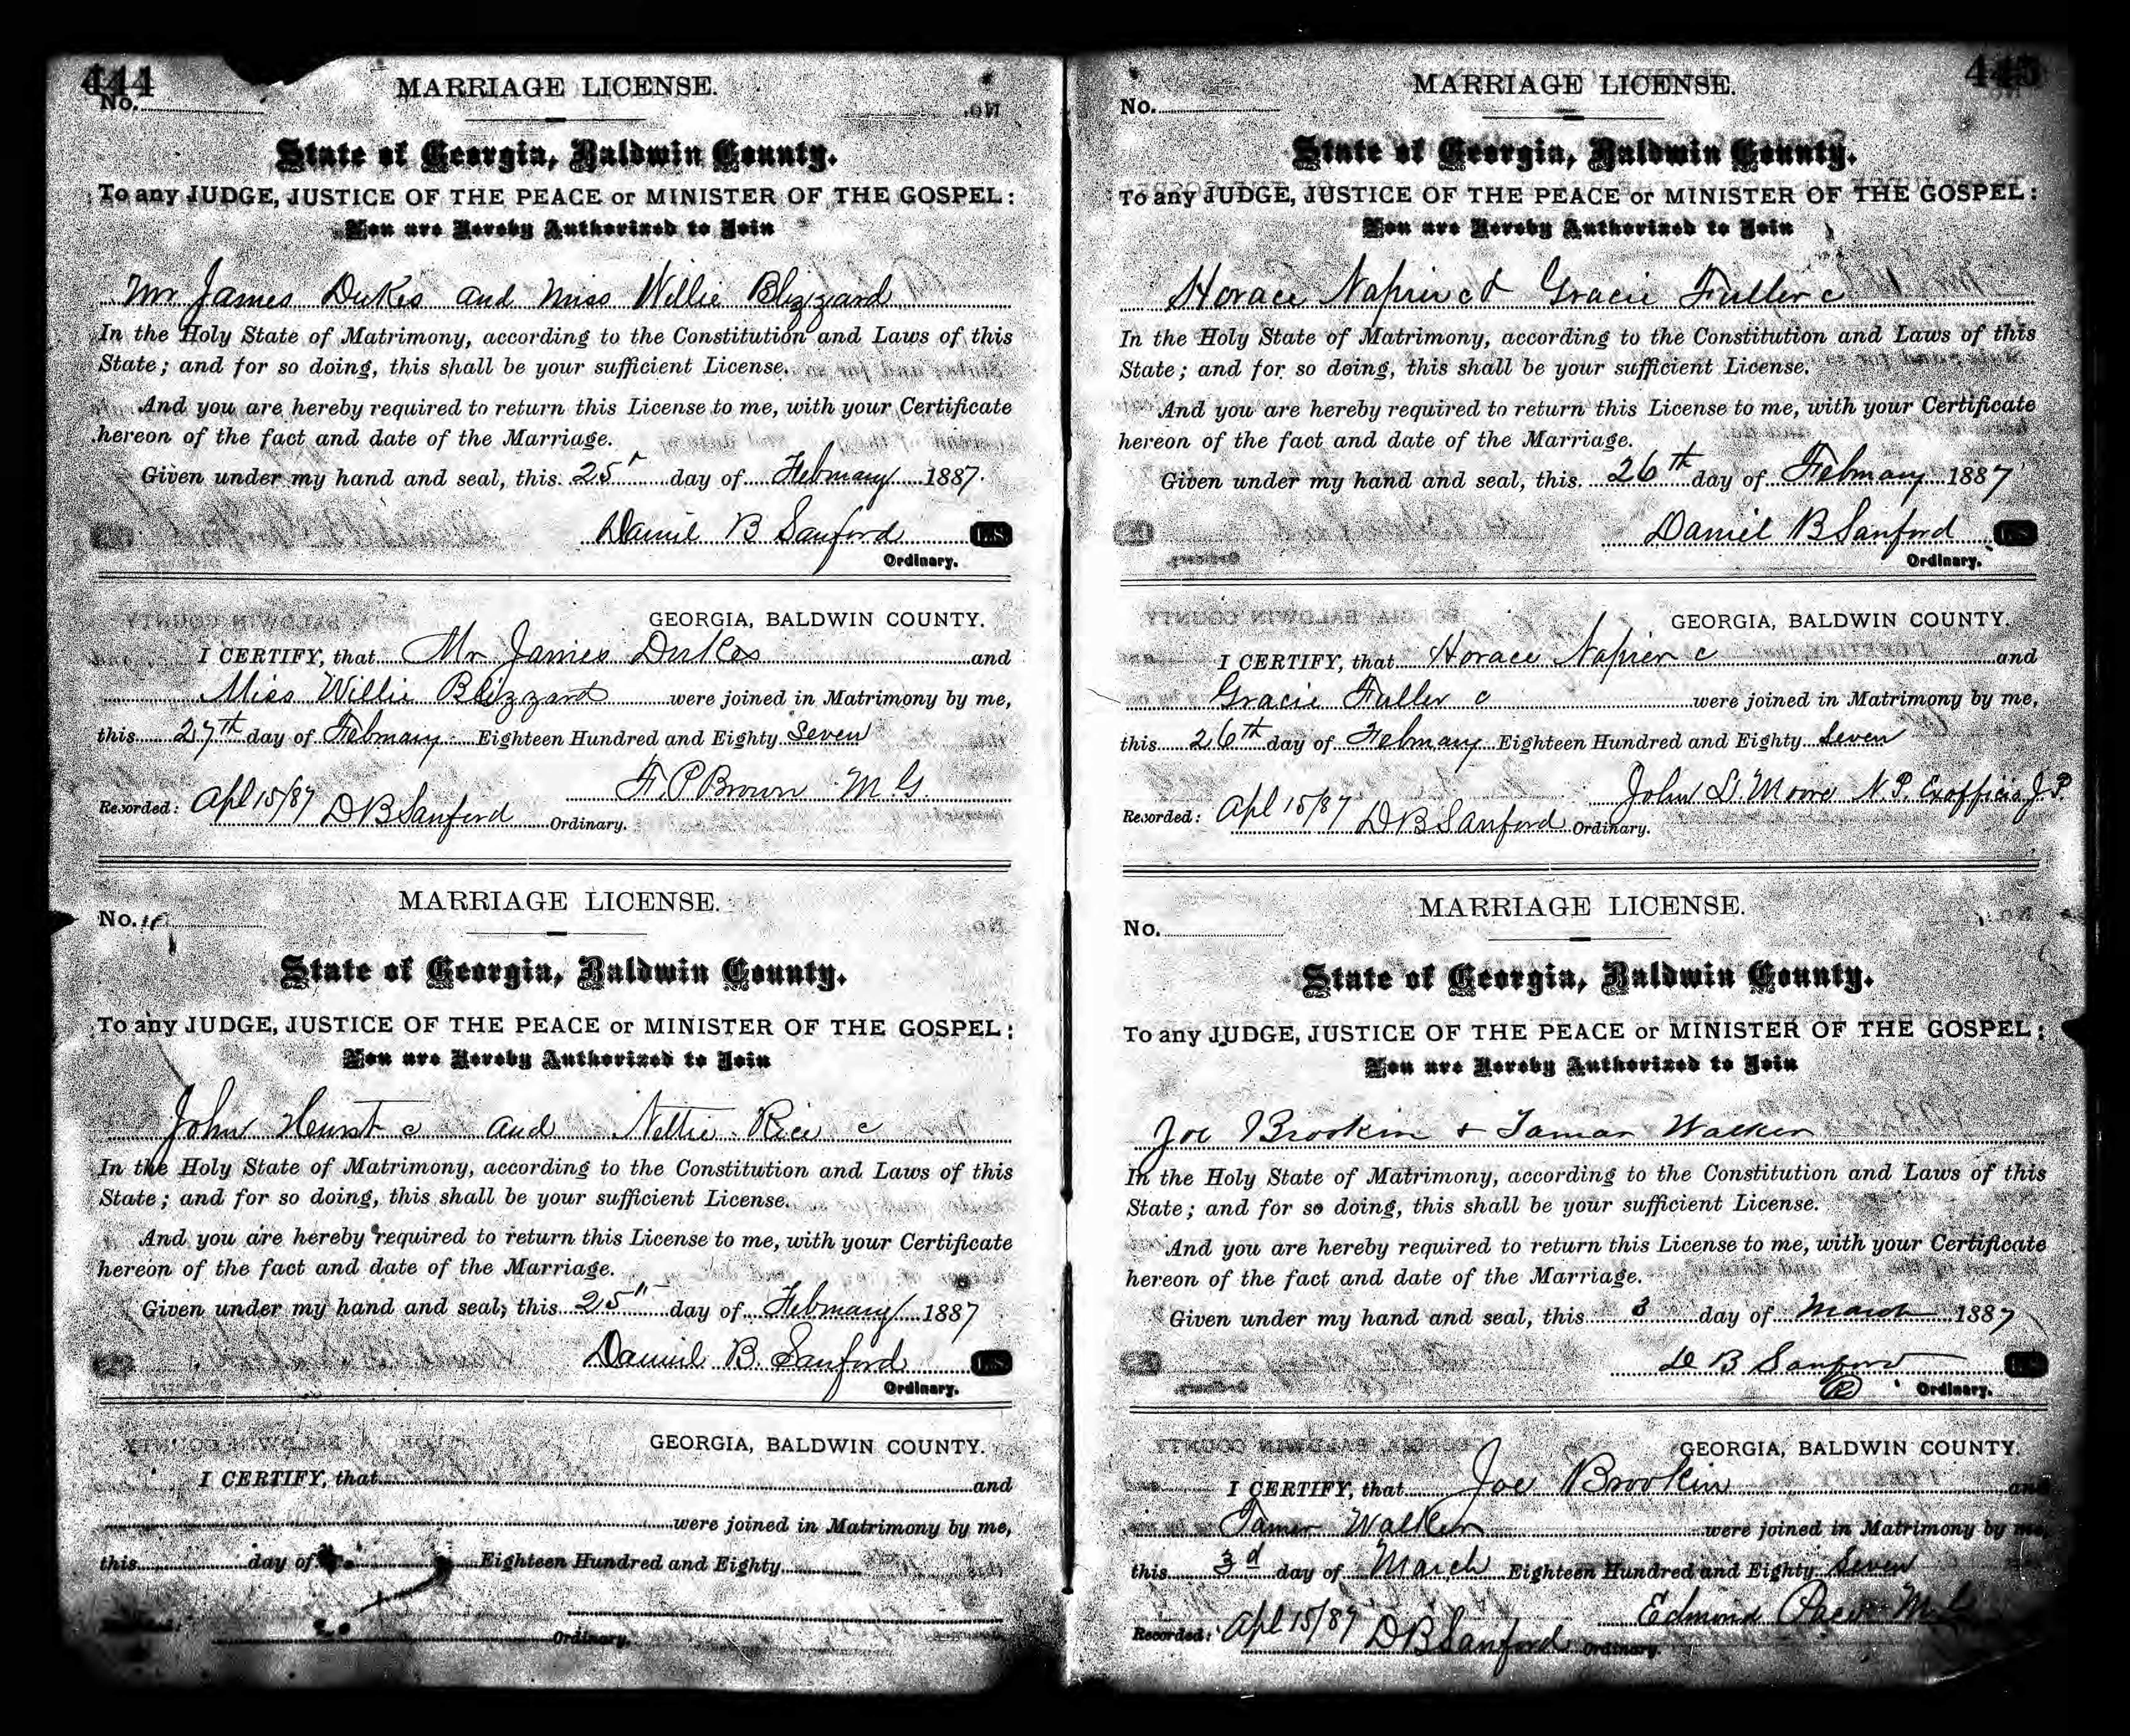 444
MARRIAGE LICENSE.
No.
State of Georgia, Baldwin County.
To any JUDGE, JUSTICE OF THE PEACE or MINISTER OF THE GOSPEL:
You are Hereby Authorized to Join
Mr James Dukes and Miss Willie Blizzard
In the Holy State of Matrimony, according to the Constitution and Laws of this
State; and for so doing, this shall be your sufficient License.
And you are hereby required to return this License to me, with your Certificate
hereon of the fact and date of the Marriage.
Given under my hand and seal, this 25 day of February 1887.
Daniel B Sanford L.S.
Ordinary.
GEORGIA, BALDWIN COUNTY.
I CERTIFY, that Mr James Dukes and
Miss Willie Blizzard were joined in Matrimony by me,
this 27th day of February Eighteen Hundred and Eighty Seven
F. P. Brown M. G.
Recorded: Apl 15/87 D B Sanford Ordinary.
MARRIAGE LICENSE.
No.
State of Georgia, Baldwin County.
To any JUDGE, JUSTICE OF THE PEACE or MINISTER OF THE GOSPEL:
You are Hereby Authorized to Join
John Hurst c and Nettie Rice c
In the Holy State of Matrimony, according to the Constitution and Laws of this
State; and for so doing, this shall be your sufficient License.
And you are hereby required to return this License to me, with your Certificate
hereon of the fact and date of the Marriage.
Given under my hand and seal, this 25" day of February 1887
Daniel B. Sanford L.S.
Ordinary.
GEORGIA, BALDWIN COUNTY.
I CERTIFY, that and
were joined in Matrimony by me,
this day of Eighteen Hundred and Eighty
Recorded: Ordinary.
445
MARRIAGE LICENSE.
No.
State of Georgia, Baldwin County.
To any JUDGE, JUSTICE OF THE PEACE or MINISTER OF THE GOSPEL:
You are Hereby Authorized to Join
Horace Napier c & Gracie Fuller c
In the Holy State of Matrimony, according to the Constitution and Laws of this
State; and for so doing, this shall be your sufficient License.
And you are hereby required to return this License to me, with your Certificate
hereon of the fact and date of the Marriage.
Given under my hand and seal, this 26th day of February 1887
Daniel B Sanford L.S.
Ordinary.
GEORGIA, BALDWIN COUNTY.
I CERTIFY, that Horace Napier c and
Gracie Fuller c were joined in Matrimony by me,
this 26th day of February Eighteen Hundred and Eighty Seven
John Moore N. P. Exofficio J. P.
Recorded: Apl 15/87 D B Sanford Ordinary.
MARRIAGE LICENSE.
No.
State of Georgia, Baldwin County.
To any JUDGE, JUSTICE OF THE PEACE or MINISTER OF THE GOSPEL:
You are Hereby Authorized to Join
Joe Brookin + Tamar Walker
In the Holy State of Matrimony, according to the Constitution and Laws of this
State; and for so doing, this shall be your sufficient License.
And you are hereby required to return this License to me, with your Certificate
hereon of the fact and date of the Marriage.
Given under my hand and seal, this 3 day of March 1887
D B Sanford
Ordinary.
GEORGIA, BALDWIN COUNTY.
I CERTIFY, that Joe Brookin and
Tamer Walker were joined in Matrimony by me,
this 3d day of March Eighteen Hundred and Eighty Seven
Edmond
Recorded: Apl 15/87 D B Sanford Ordinary.